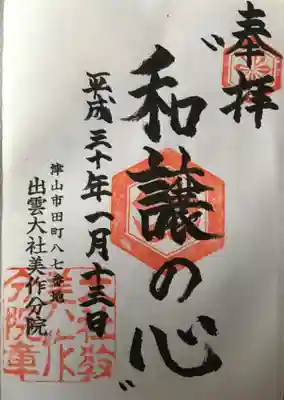 奉拝
〃和譲の心〃
平成三十年一月十三日
津山市田町八七番地
出雲大社美作分院